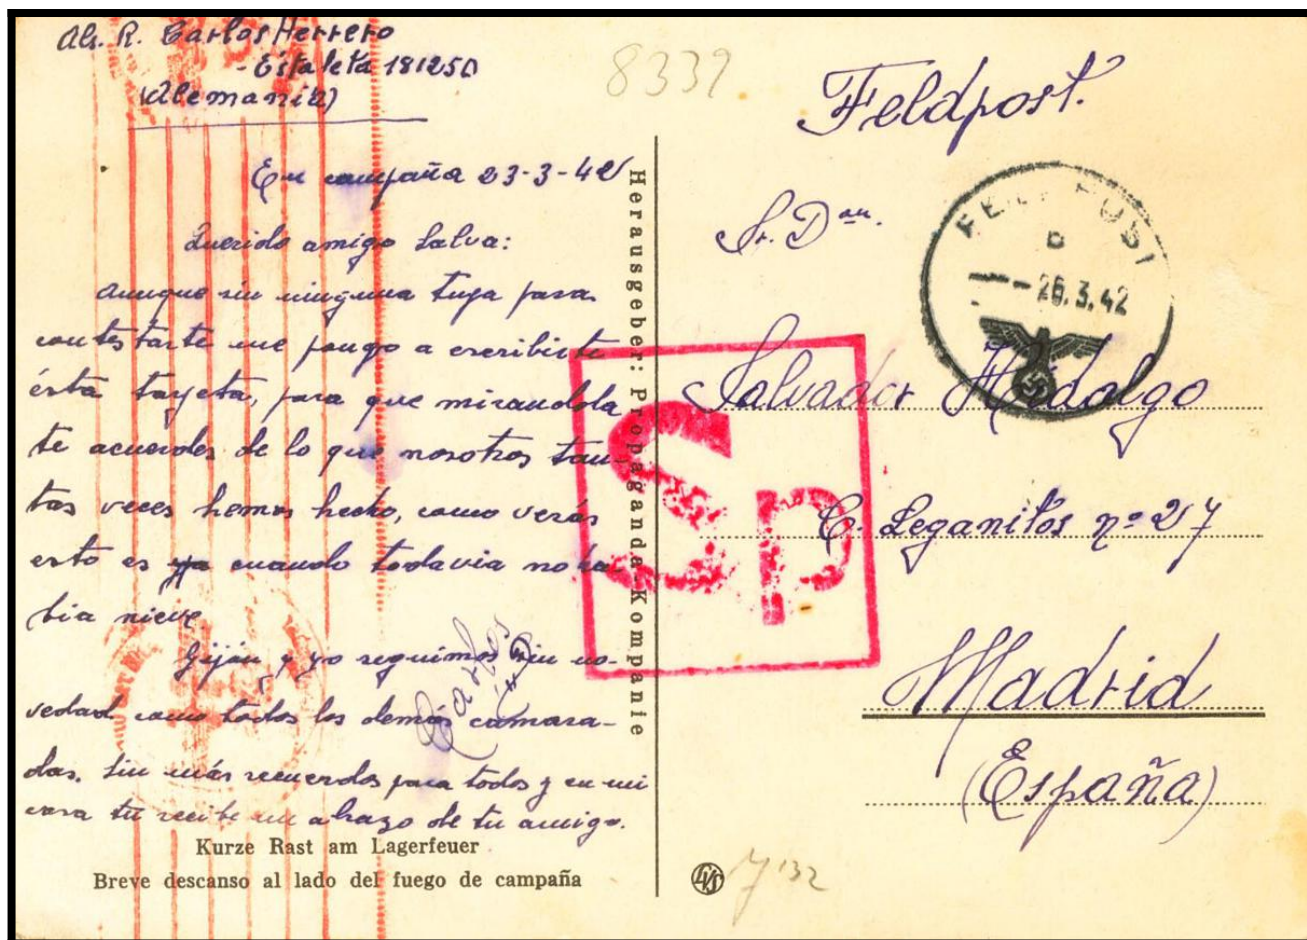 R. Carlos Herrero
- Estafeta 18125D
(Alemania)
8339
En campaña 23-3-42
Querido amigo Salva:
Aunque sin ninguna tuya para
contestarte me pongo a escribirte
ésta tarjeta, para que mirandola
te acuerdes de lo que nosotros tan-
tas veces hemos hecho, como verás
esto es cuando todavia no ha-
bia nieve.
Gijón y yo seguimos sin no-
vedad como todos los demás cámara-
das. Sin más recuerdos para todos y en mi
tu recibe un abrazo de tu amigo.
Carlos
Kurze Rast am Lagerfeuer
Breve descanso al lado del fuego de campaña
Herausgeber: Propaganda-Kompanie
Feldpost.
FELDPOST
b
26.3.42
Sr. Dn.
Salvador Hidalgo
C. Leganitos nº 27
Madrid
(España)
Sp